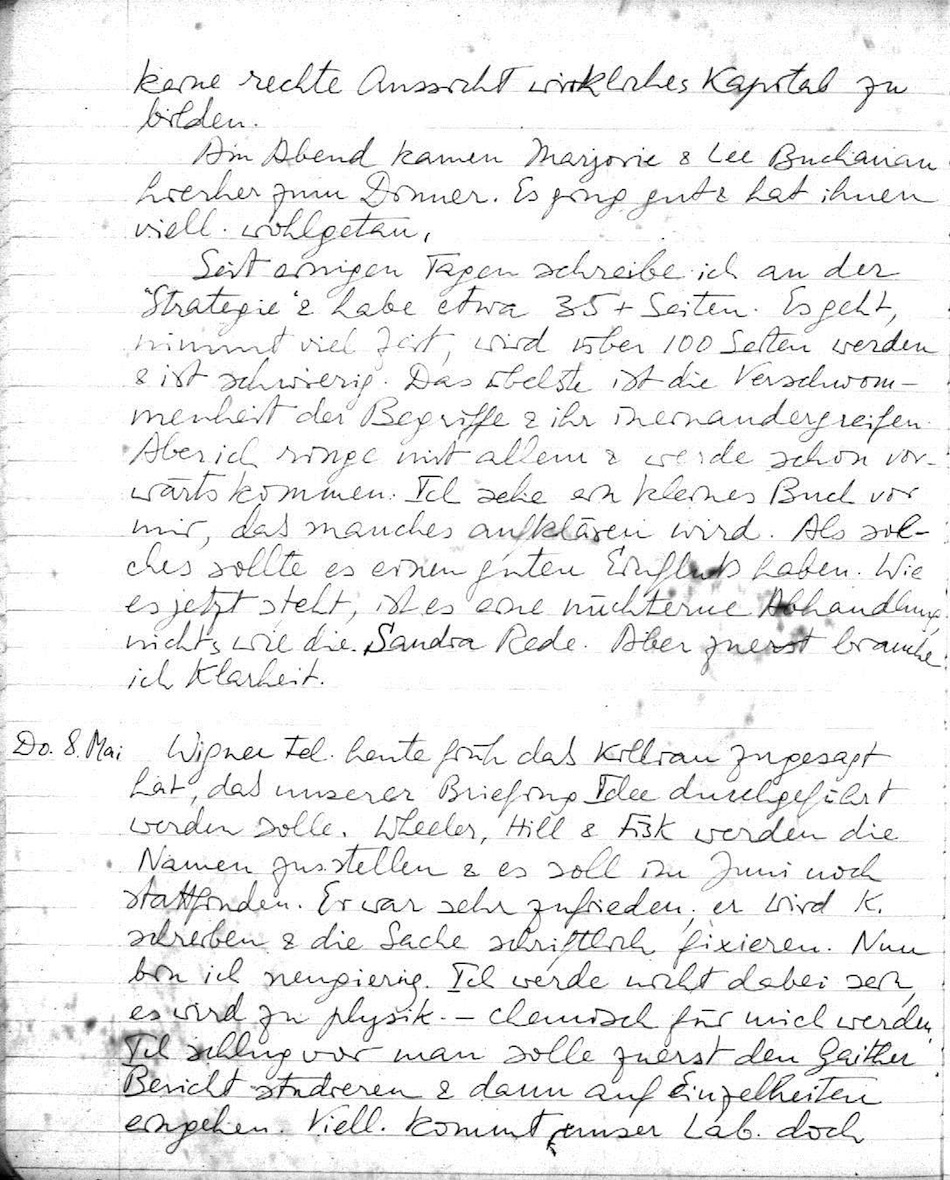 keine rechte Aussicht wirkliches Kapital zu
bilden.
Am Abend kamen Marjorie & Lee Buchanan
hierher zum Dinner. Es ging gut & hat ihnen
viell. wohlgetan.
Seit einigen Tagen schreibe ich an der
"Strategie" & habe etwa 35+ Seiten. Es geht,
nimmt viel Zeit, wird über 100 Seiten werden
& ist schwierig. Das übelste ist die Verschwom-
menheit der Begriffe & ihr ineinandergreifen.
Aber ich ringe mit allem & werde schon vor-
wärts kommen. Ich sehe ein kleines Buch vor
mir, das manches aufklären wird. Als sol-
ches sollte es einen guten Einfluss haben. Wie
es jetzt steht, ist es eine nüchterne Abhandlung,
nichts wie die Sandia Rede. Aber zuerst brauche
ich Klarheit.
Do. 8. Mai Wigner tel. heute früh das Killian zugesagt
hat, das unserer Briefing Idee durchgeführt
werden solle. Wheeler, Hill & Fisk werden die
Namen zusstellen & es soll im Juni noch
stattfinden. Er war sehr zufrieden, er wird K.
schreiben & die Sache schriftlich fixieren. Nun
bin ich neugierig. Ich werde nicht dabei sein,
es wird zu physik. – chemisch für mich werden.
Ich schlug vor man solle zuerst den Gaither
Bericht studieren & dann auf Einzelheiten
eingehen. Viell. kommt unser Lab. doch